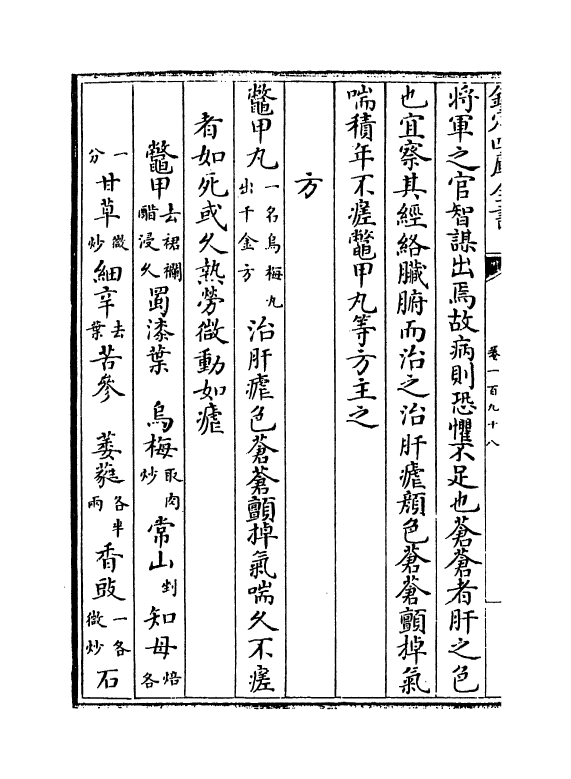 欽定四庫全書
卷一百九十八
將軍之官智謀出焉故病則恐懼不足也蒼蒼者肝之色
也宜察其經絡臟腑而治之治肝瘧顔色蒼蒼顫掉氣
喘積年不瘥鼈甲丸等方主之
方
鼈甲丸一名烏梅丸出千金方治肝瘧色蒼蒼顫掉氣喘久不瘥
者如死或久熱勞微動如瘧
鼈甲去裙襴醋浸久蜀漆葉 烏梅取肉炒常山剉知母焙各
一分甘草微炒細辛去葉苦參 萎蕤各半兩香豉一各微炒石